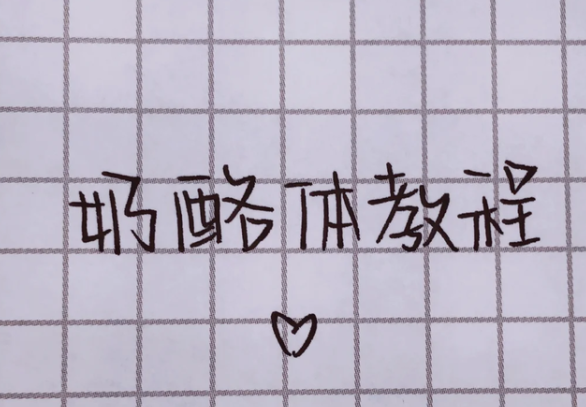 奶酪体教程